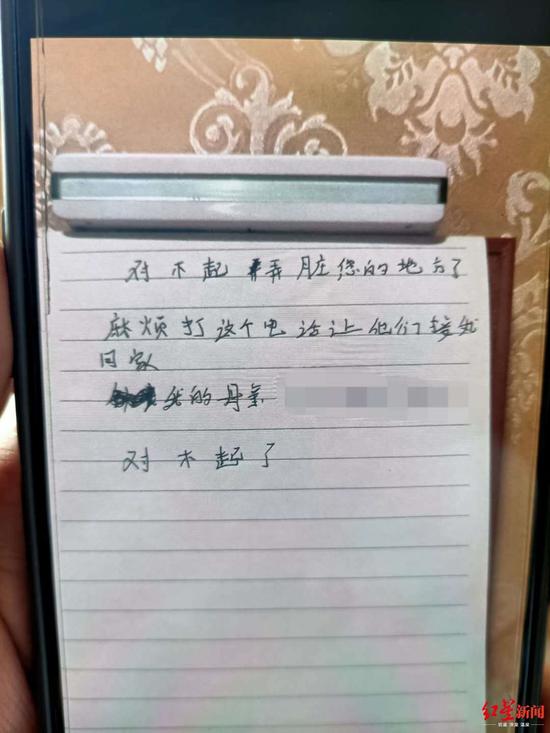 对不起 弄脏您的地方了
麻烦打这个电话让他们接我
回家
我的母亲
对不起了
红星新闻